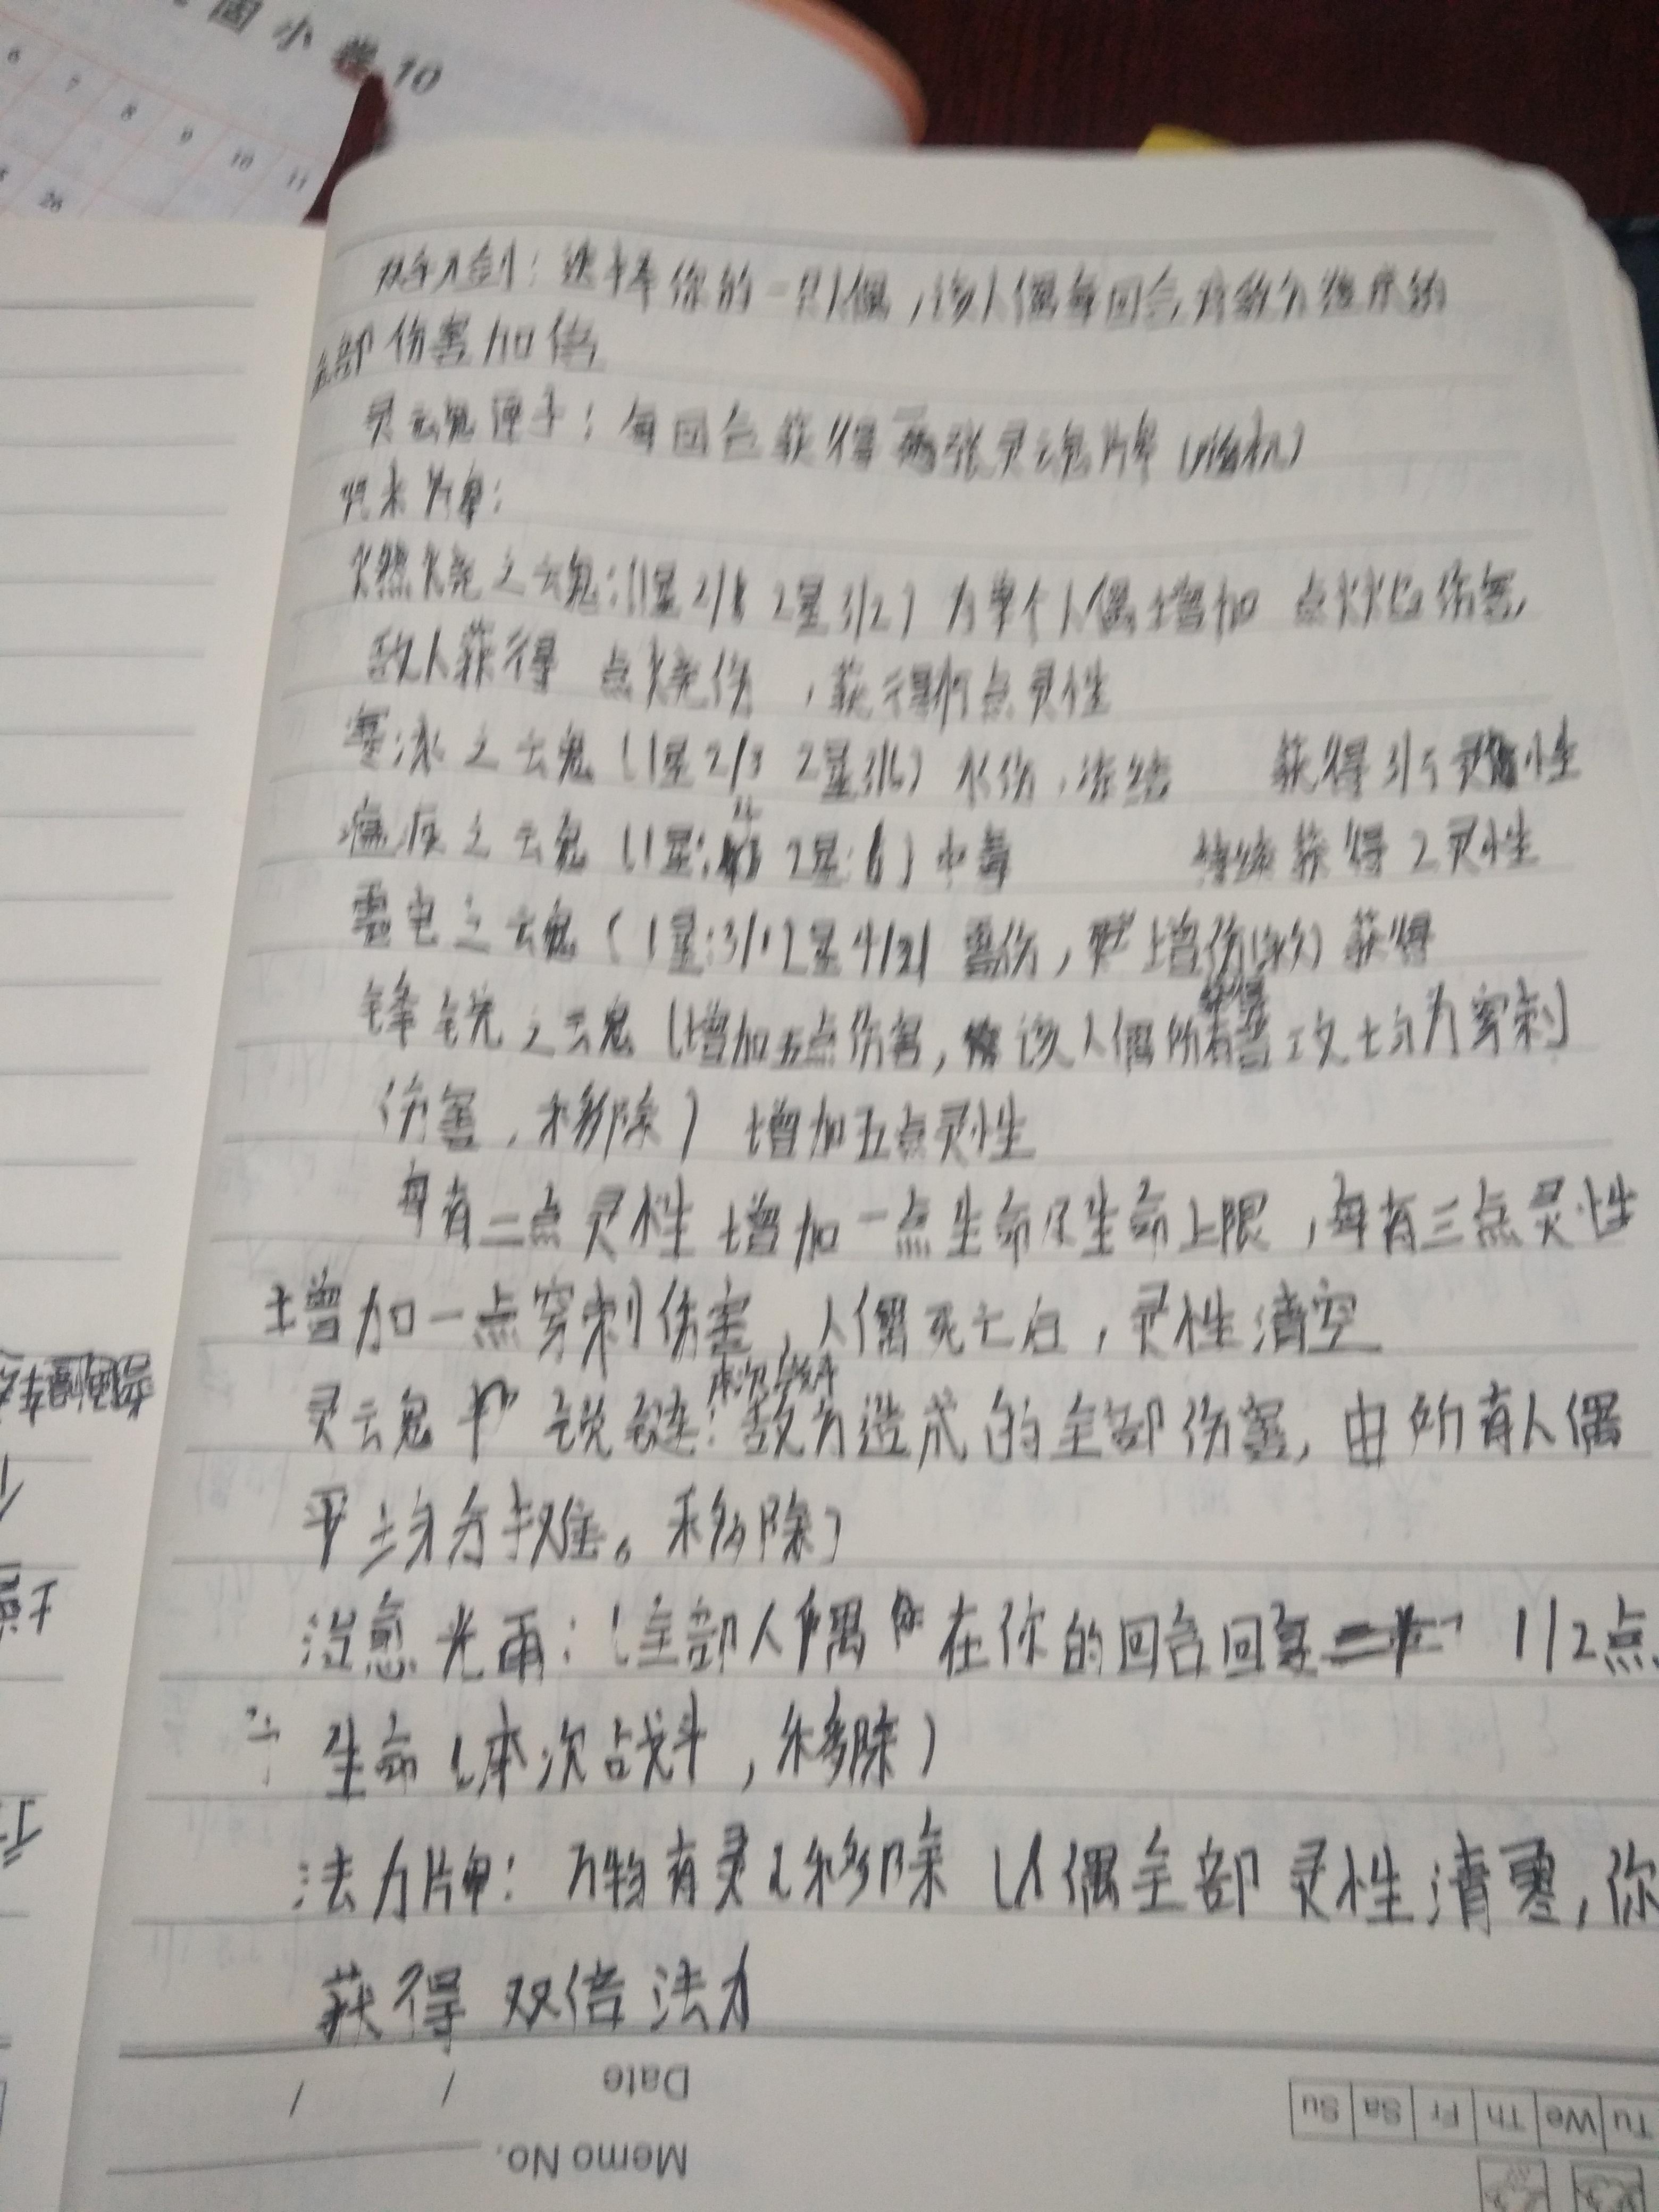 固小卷10
6 7 8 9 10 11
26
双刃剑:选择你的一只人偶,该人偶每回合对敌方造成的
全部伤害加倍
灵魂匣子:每回合获得两张灵魂牌(随机)
咒术牌:
燃烧之魂:(1星2/1 2星3/2)为单个人偶增加 点火焰伤害,
敌人获得 点烧伤 ,获得 点灵性
寒冰之魂(1星2/3 2星3/6)冰伤,冻结 获得3/5灵性
瘟疫之魂(1星:4 2星:6)中毒 持续获得2灵性
雷电之魂(1星:3/1 2星4/2)雷伤, 增伤 获得
锋锐之魂(增加五点伤害,该人偶所有 攻击均为穿刺
伤害,移除)增加五点灵性
每有二点灵性增加一点生命及生命上限,每有三点灵性
增加一点穿刺伤害,人偶死亡后,灵性清空
灵魂 锁链:本次战斗敌方造成的全部伤害,由所有人偶
平均分摊。移除)
治愈光雨:(全部人偶 在你的回合回复 1/2点
生命(本次战斗,移除)
法力牌:万物有灵(移除 人偶全部灵性清零,你
获得双倍法力
Date / /
Memo No.
Tu We Th Fr Sa Su